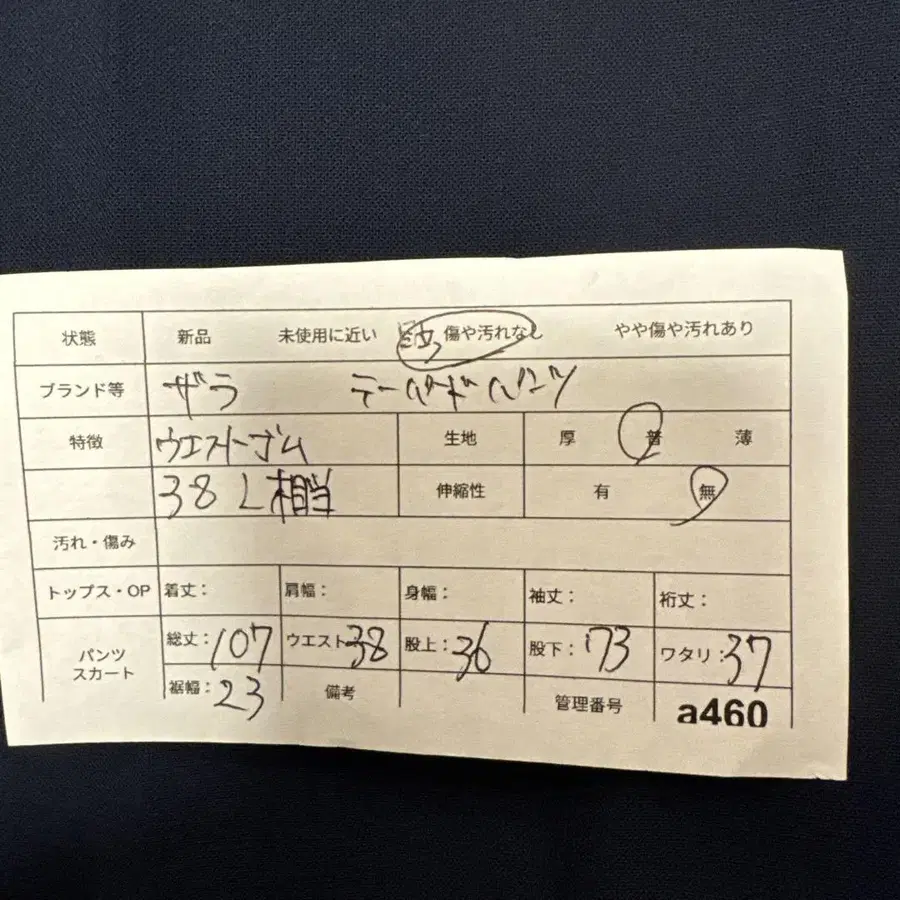 状態 新品 未使用に近い 傷や汚れなし やや傷や汚れあり
ブランド等 ザラ テーパードパンツ
特徴 ウエストゴム 生地 厚 普 薄
38 L相当 伸縮性 有 無
汚れ・傷み
トップス・OP 着丈： 肩幅： 身幅： 袖丈： 裄丈：
パンツ スカート 総丈：107 ウエスト38 股上：36 股下：73 ワタリ：37
裾幅：23 備考 管理番号 a460